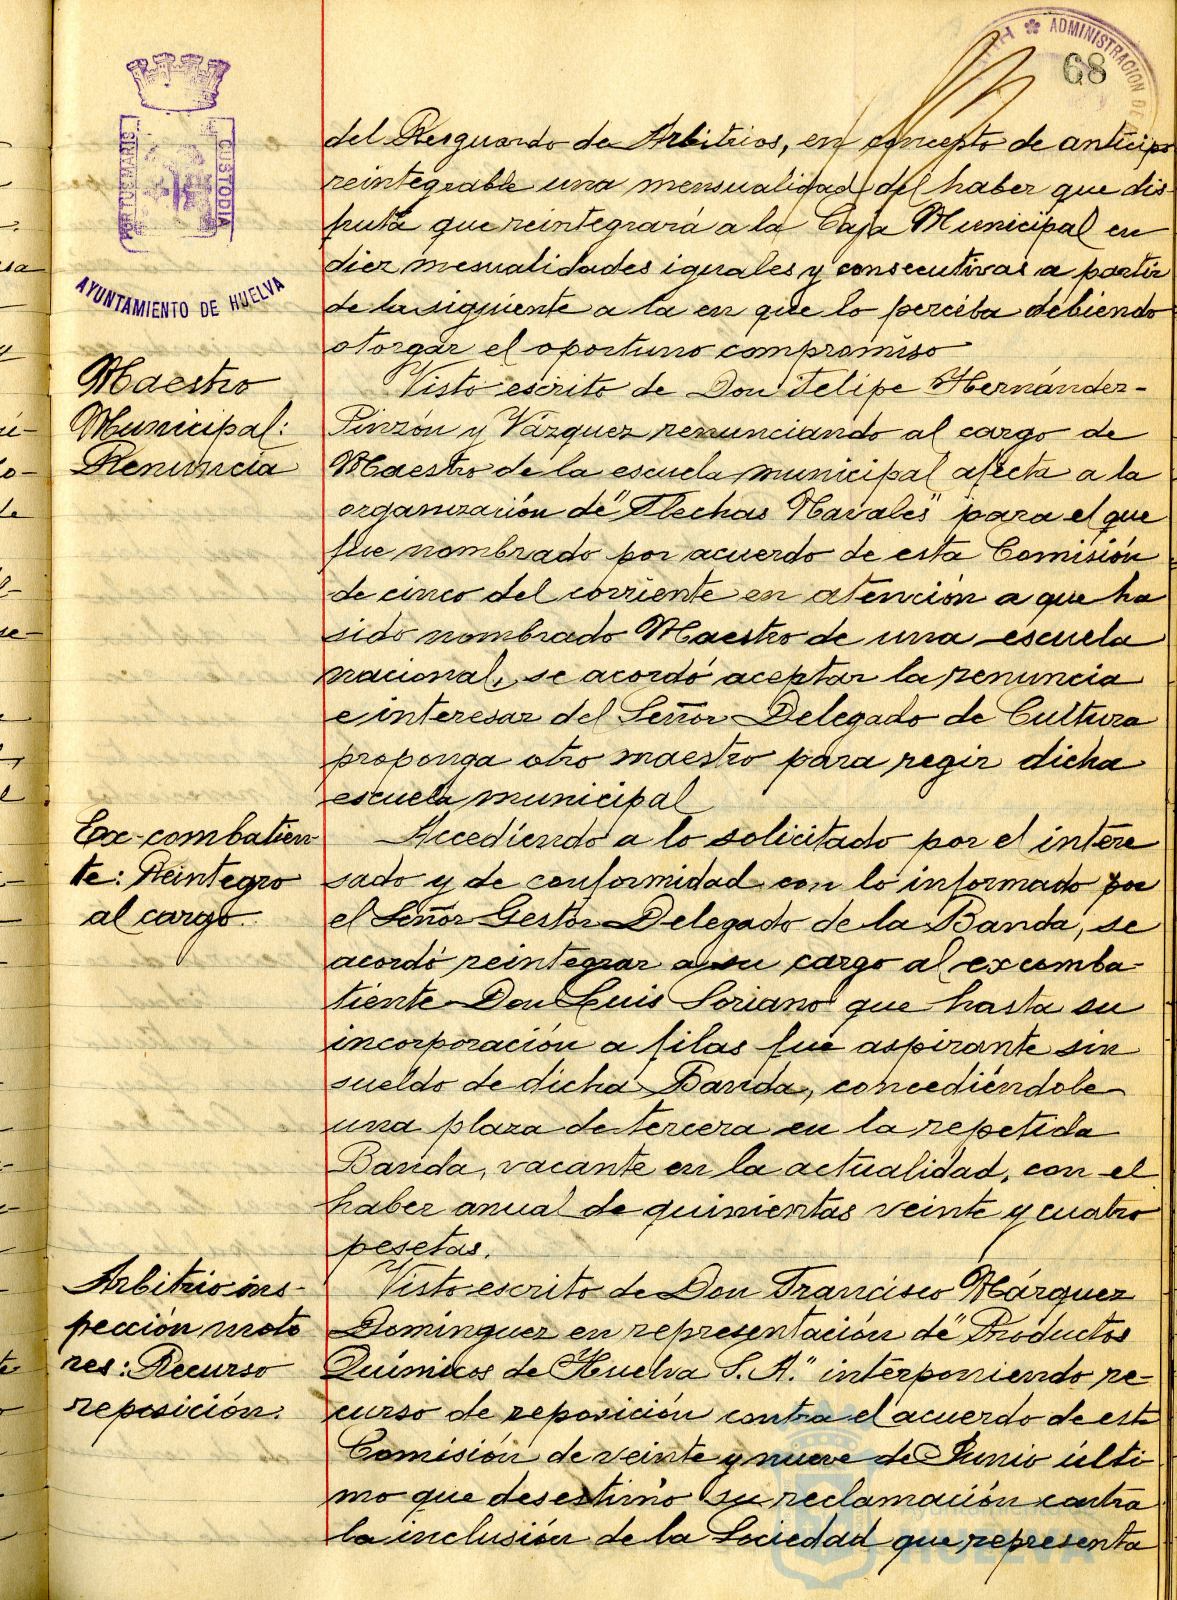 68
ADMINISTRACION DE
PORTUS MARIS
CUSTODIA
AYUNTAMIENTO DE HUELVA
del Resguardo de Arbitrios, en concepto de anticipo
reintegrable una mensualidad del haber que dis-
fruta que reintegrará a la Caja Municipal en
diez mesualidades iguales y consecutivas a partir
de la siguiente a la en que lo perciba debiendo
otorgar el oportuno compromiso
Maestro
Municipal:
Renuncia
Visto escrito de Don Felipe Hernández-
Pinzón y Vázquez renunciando al cargo de
Maestro de la escuela municipal afecta a la
organización de "Flechas Navales" para el que
fue nombrado por acuerdo de esta Comisión
de cinco del corriente en atención a que ha
sido nombrado Maestro de una escuela
nacional, se acordó aceptar la renuncia
e interesar del Señor Delegado de Cultura
proponga otro maestro para regir dicha
escuela municipal
Ex-combatien-
te: Reintegro
al cargo.
Accediendo a lo solicitado por el intere
sado y de conformidad con lo informado por
el Señor Gestor Delegado de la Banda, se
acordó reintegrar a su cargo al excomba-
tiente Don Luis Soriano que hasta su
incorporación a filas fué aspirante sin
sueldo de dicha Banda, concediéndole
una plaza de tercera en la repetida
Banda, vacante en la actualidad, con el
haber anual de quinientas veinte y cuatro
pesetas.
Arbitrio ins-
pección moto
res: Recurso
reposición.
Visto escrito de Don Francisco Márquez
Dominguez en representación de "Productos
Químicos de Huelva S.A." interponiendo re-
curso de reposición contra el acuerdo de esta
Comisión de veinte y nueve de Junio últi-
mo que desestimó su reclamación contra
la inclusión de la Sociedad que representa
Ayuntamiento de
HUELVA